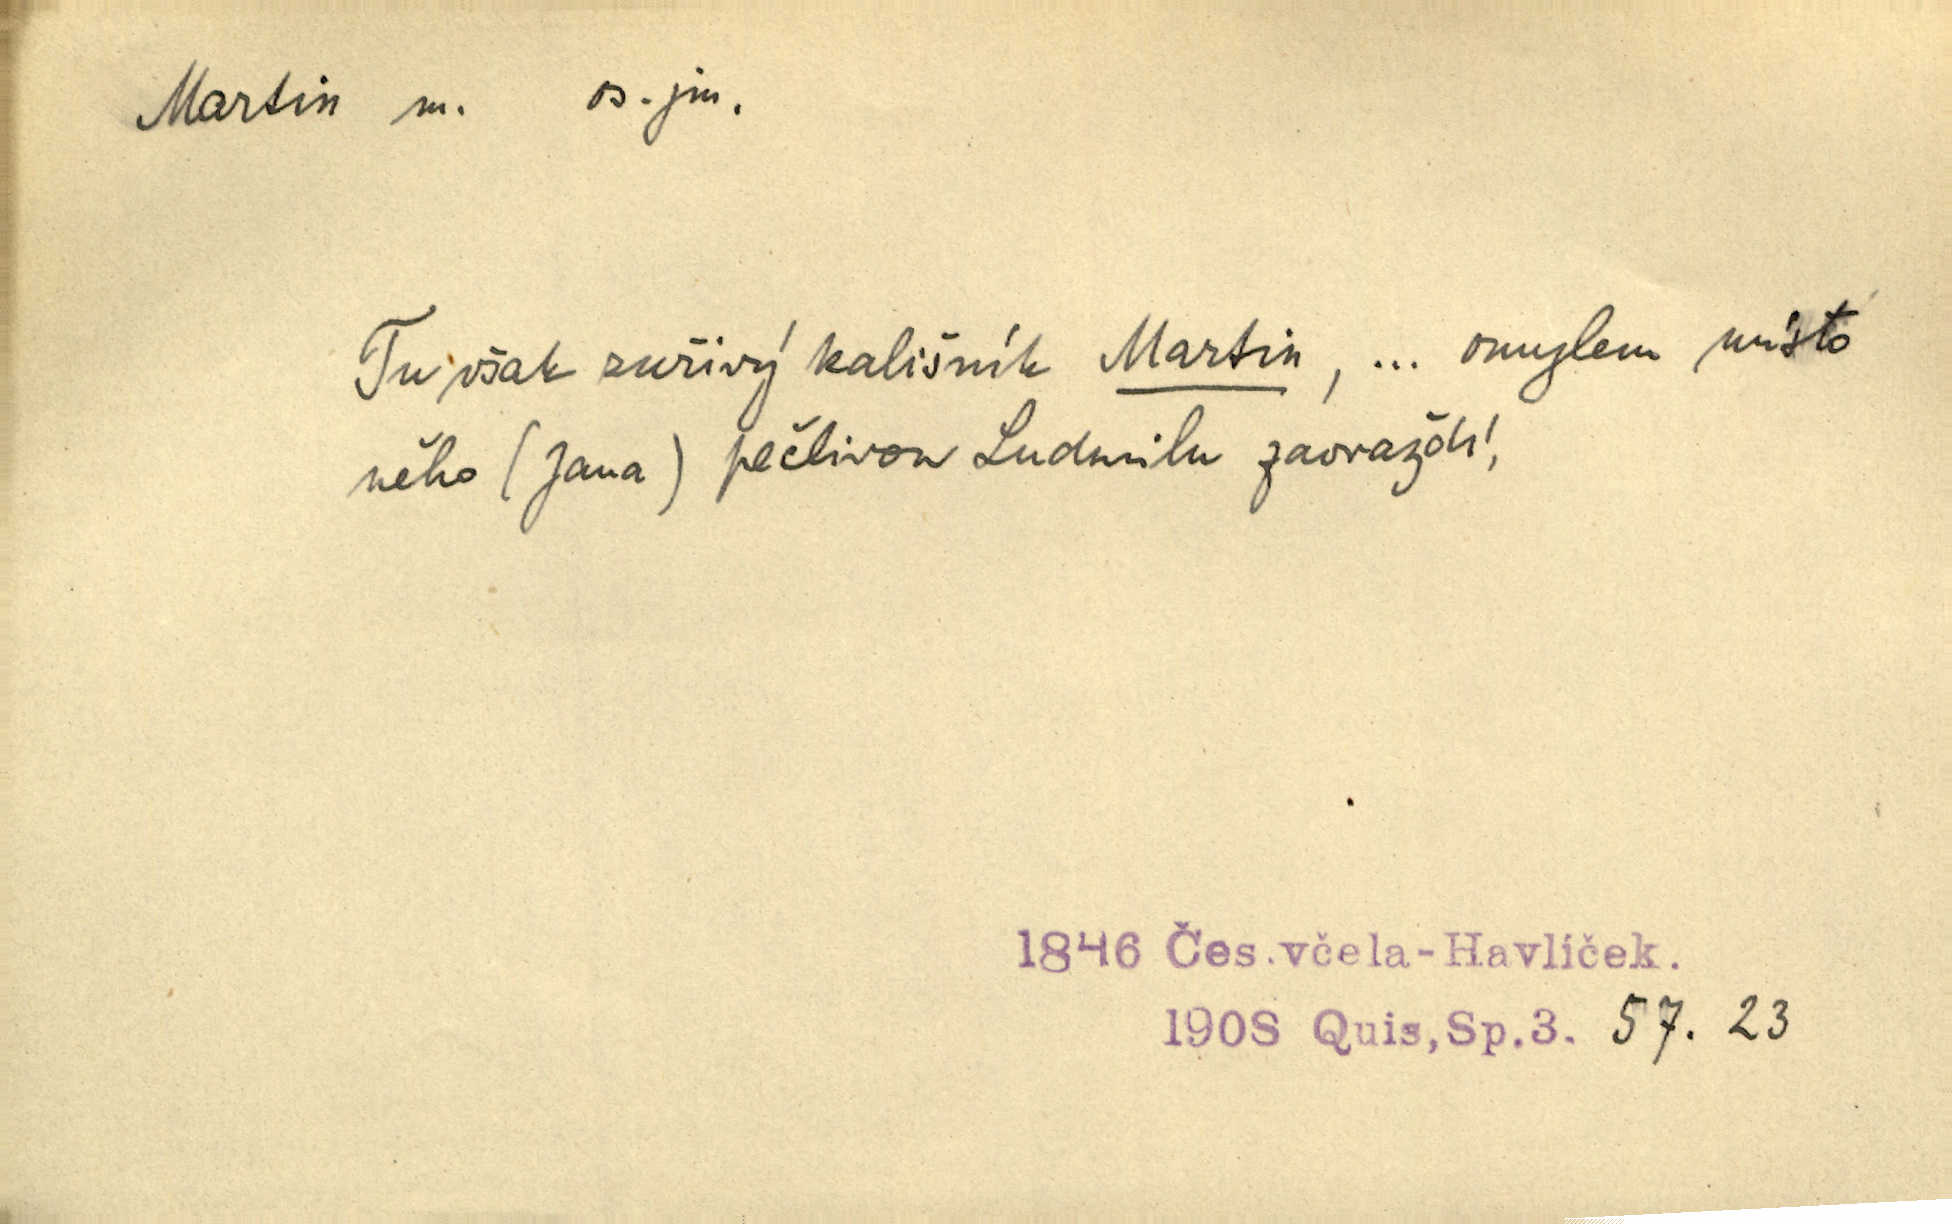 Martin m. os. jm.
Tu však zuřivý kališník Martin, ... omylem místo
něho (Jana) pečlivou Ludmilu zavraždí,
1846 Čes.včela-Havlíček.
1908 Quis,Sp.3. 57. 23